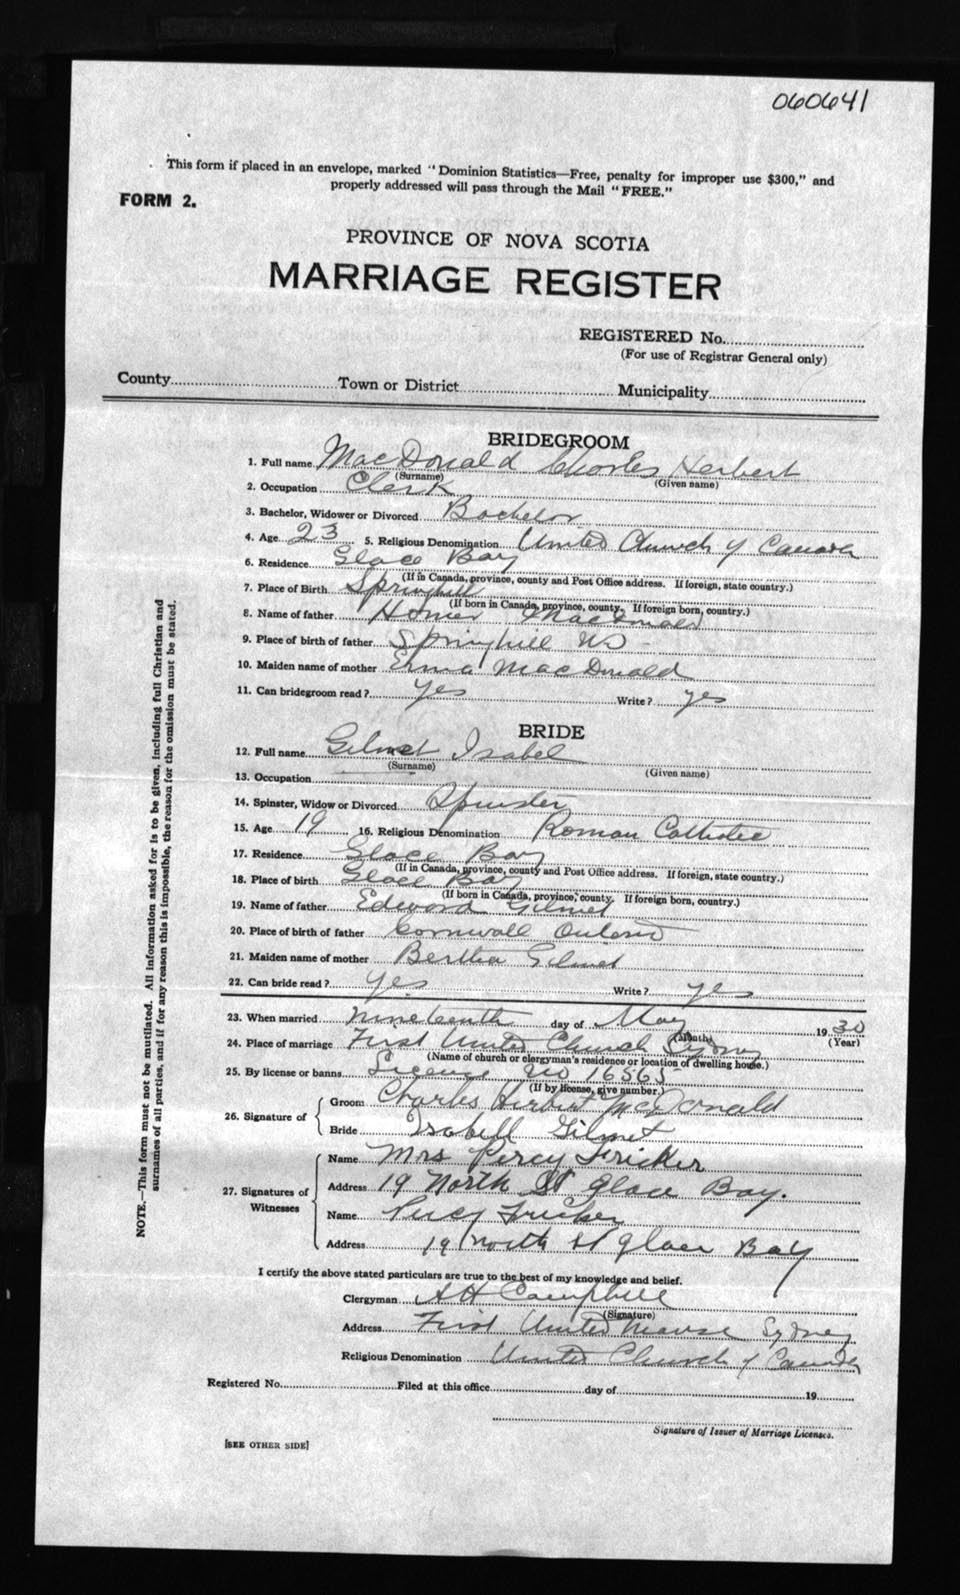 060641
This form if placed in an envelope, marked "Dominion Statistics—Free, penalty for improper use $300," and
properly addressed will pass through the Mail "FREE."
FORM 2.
PROVINCE OF NOVA SCOTIA
MARRIAGE REGISTER
REGISTERED No.
(For use of Registrar General only)
County Town or District Municipality
BRIDEGROOM
1. Full name MacDonald Charles Herbert
(Surname) (Given name)
2. Occupation Clerk
3. Bachelor, Widower or Divorced Bachelor
4. Age 23 5. Religious Denomination United Church of Canada
6. Residence Glace Bay
(If in Canada, province, county and Post Office address. If foreign, state country.)
7. Place of Birth Springhill
(If born in Canada, province, county. If foreign born, country.)
8. Name of father Homer MacDonald
9. Place of birth of father Springhill NS
10. Maiden name of mother Erma MacDonald
11. Can bridegroom read? yes Write? yes
BRIDE
12. Full name Gilmet Isabel
(Surname) (Given name)
13. Occupation
14. Spinster, Widow or Divorced Spinster
15. Age 19 16. Religious Denomination Roman Catholic
17. Residence Glace Bay
(If in Canada, province, county and Post Office address. If foreign, state country.)
18. Place of birth Glace Bay
(If born in Canada, province, county. If foreign born, country.)
19. Name of father Edward Gilmet
20. Place of birth of father Cornwall Ontario
21. Maiden name of mother Bertha Gilmet
22. Can bride read? yes Write? yes
23. When married nineteenth day of May 1930
(Month) (Year)
24. Place of marriage First United Church Sydney
(Name of church or clergyman's residence or location of dwelling house.)
25. By license or banns License No 16565
(If by license, give number.)
26. Signature of
Groom Charles Herbert McDonald
Bride Isabell Gilmet
27. Signatures of Witnesses
Name Mrs Percy Fricker
Address 19 North St Glace Bay.
Name Percy Fricker
Address 19 North St Glace Bay
I certify the above stated particulars are true to the best of my knowledge and belief.
Clergyman A H Campbell
(Signature)
Address First United Manse Sydney
Religious Denomination United Church of Canada
Registered No. Filed at this office day of 19
Signature of Issuer of Marriage Licenses.
[SEE OTHER SIDE]
NOTE.—This form must not be mutilated. All information asked for is to be given, including full Christian and
surnames of all parties, and if for any reason this is impossible, the reason for the omission must be stated.